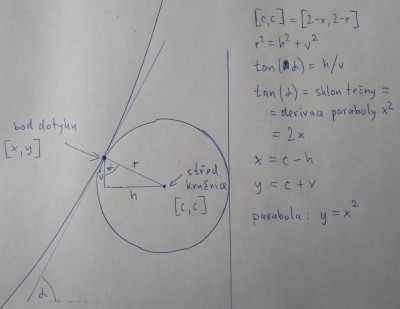 [c,c] = [2-r, 2-r]
r² = h² + v²
tan(α) = h/v
tan(α) = sklon tečny =
= derivace paraboly x²
= 2x
x = c - h
y = c + v
parabola: y = x²
bod dotyku
[x,y]
r
α
v
h
střed
kružnice
[c,c]
α